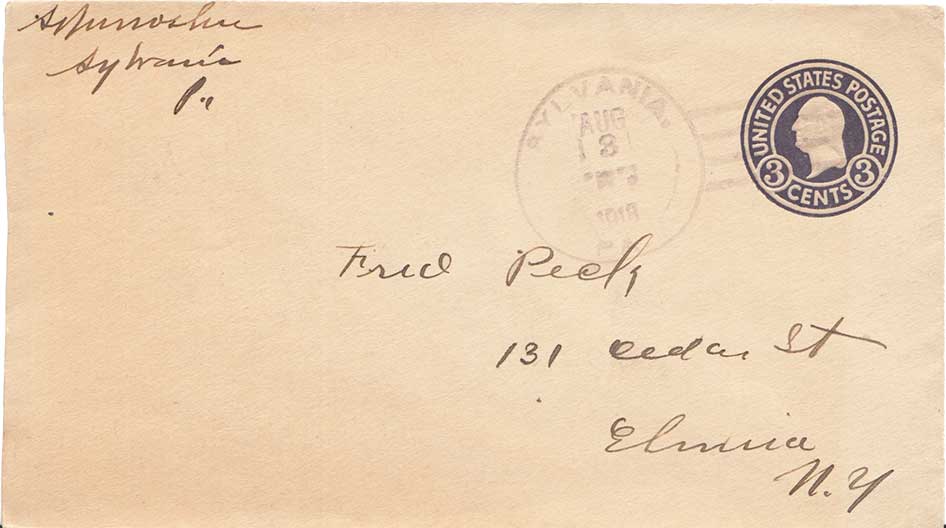 Sylvania
Pa
SYLVANIA
AUG
3
1918
PA
UNITED STATES POSTAGE
3 CENTS 3
Fred Peck
131 Cedar St
Elmira
N.Y